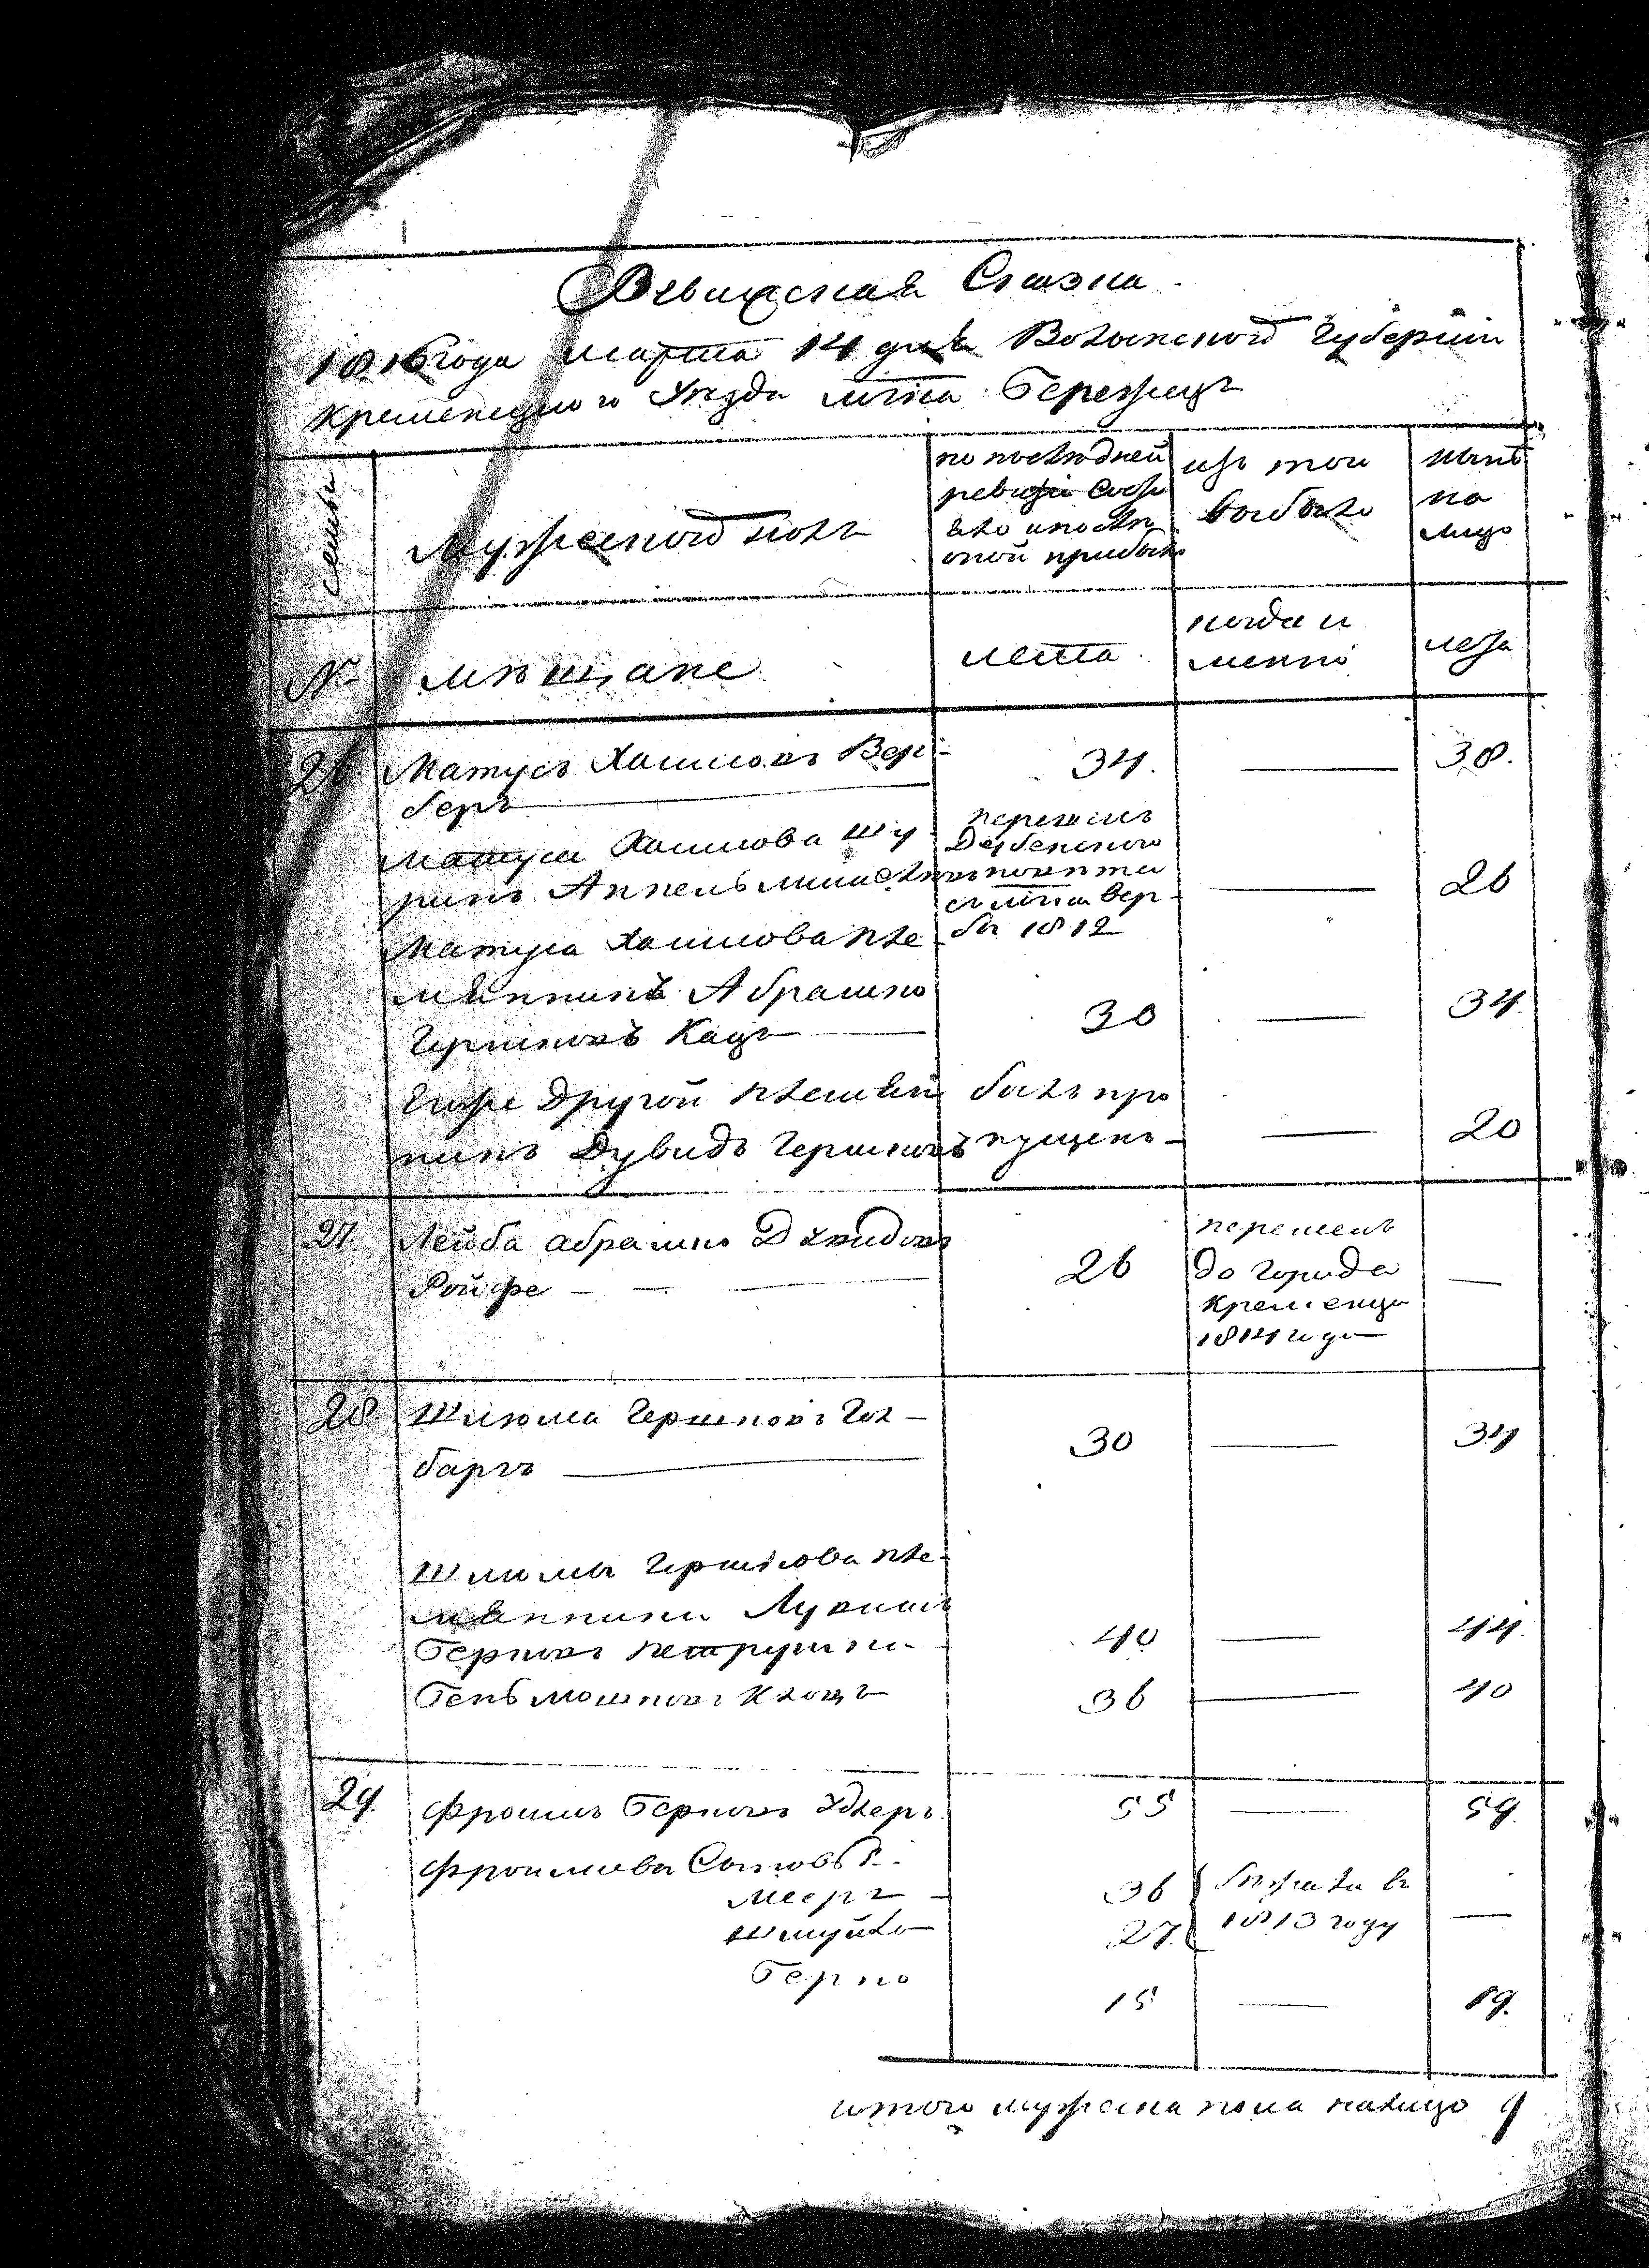 Ревизская Сказка
1816 года марта 14 дня Волынской Губернии
Кременецкого Уезда мтка Бережец
семьи
Мужеской полъ
по последней
ревизіи состо
яло и после
оной прибыло
изъ того
выбыло
ныне
на
лицо
№
мѣщане
лета
когда и
менно
лета
26. Матусъ Хаимовъ Вер- 34. — 38.
беръ
Матуса Хаимова Шу
ринъ
перешелъ
Дубенского
повета
съ мтка Вер
бы 1812
— 26
Матуса Хаимова пле
мянникъ Абрамко
Гершковъ Кацъ 30 — 34.
Егоже Другой племян былъ про
никъ Дувидъ Гершковъ пущенъ — 20
27. Лейба Абрамко Дувидовъ
Ройфе — 26 —
перешелъ
до города
Кременца
1814 года
28. Шлюма Гершковъ Гол-
баргъ 30 — 34
Шлюмы Гершкова пле-
мянники
Берковъ Петрушка 40 — 44.
Бень Мошковъ 36 — 40
29. Фроимъ Берковъ 55 — 59.
Фроимовы Сыновья
Мееръ 36
Шмуйло 27.
бежали въ
1813 году —
Берко 15 — 19.
итого мужеска пола налицо 9